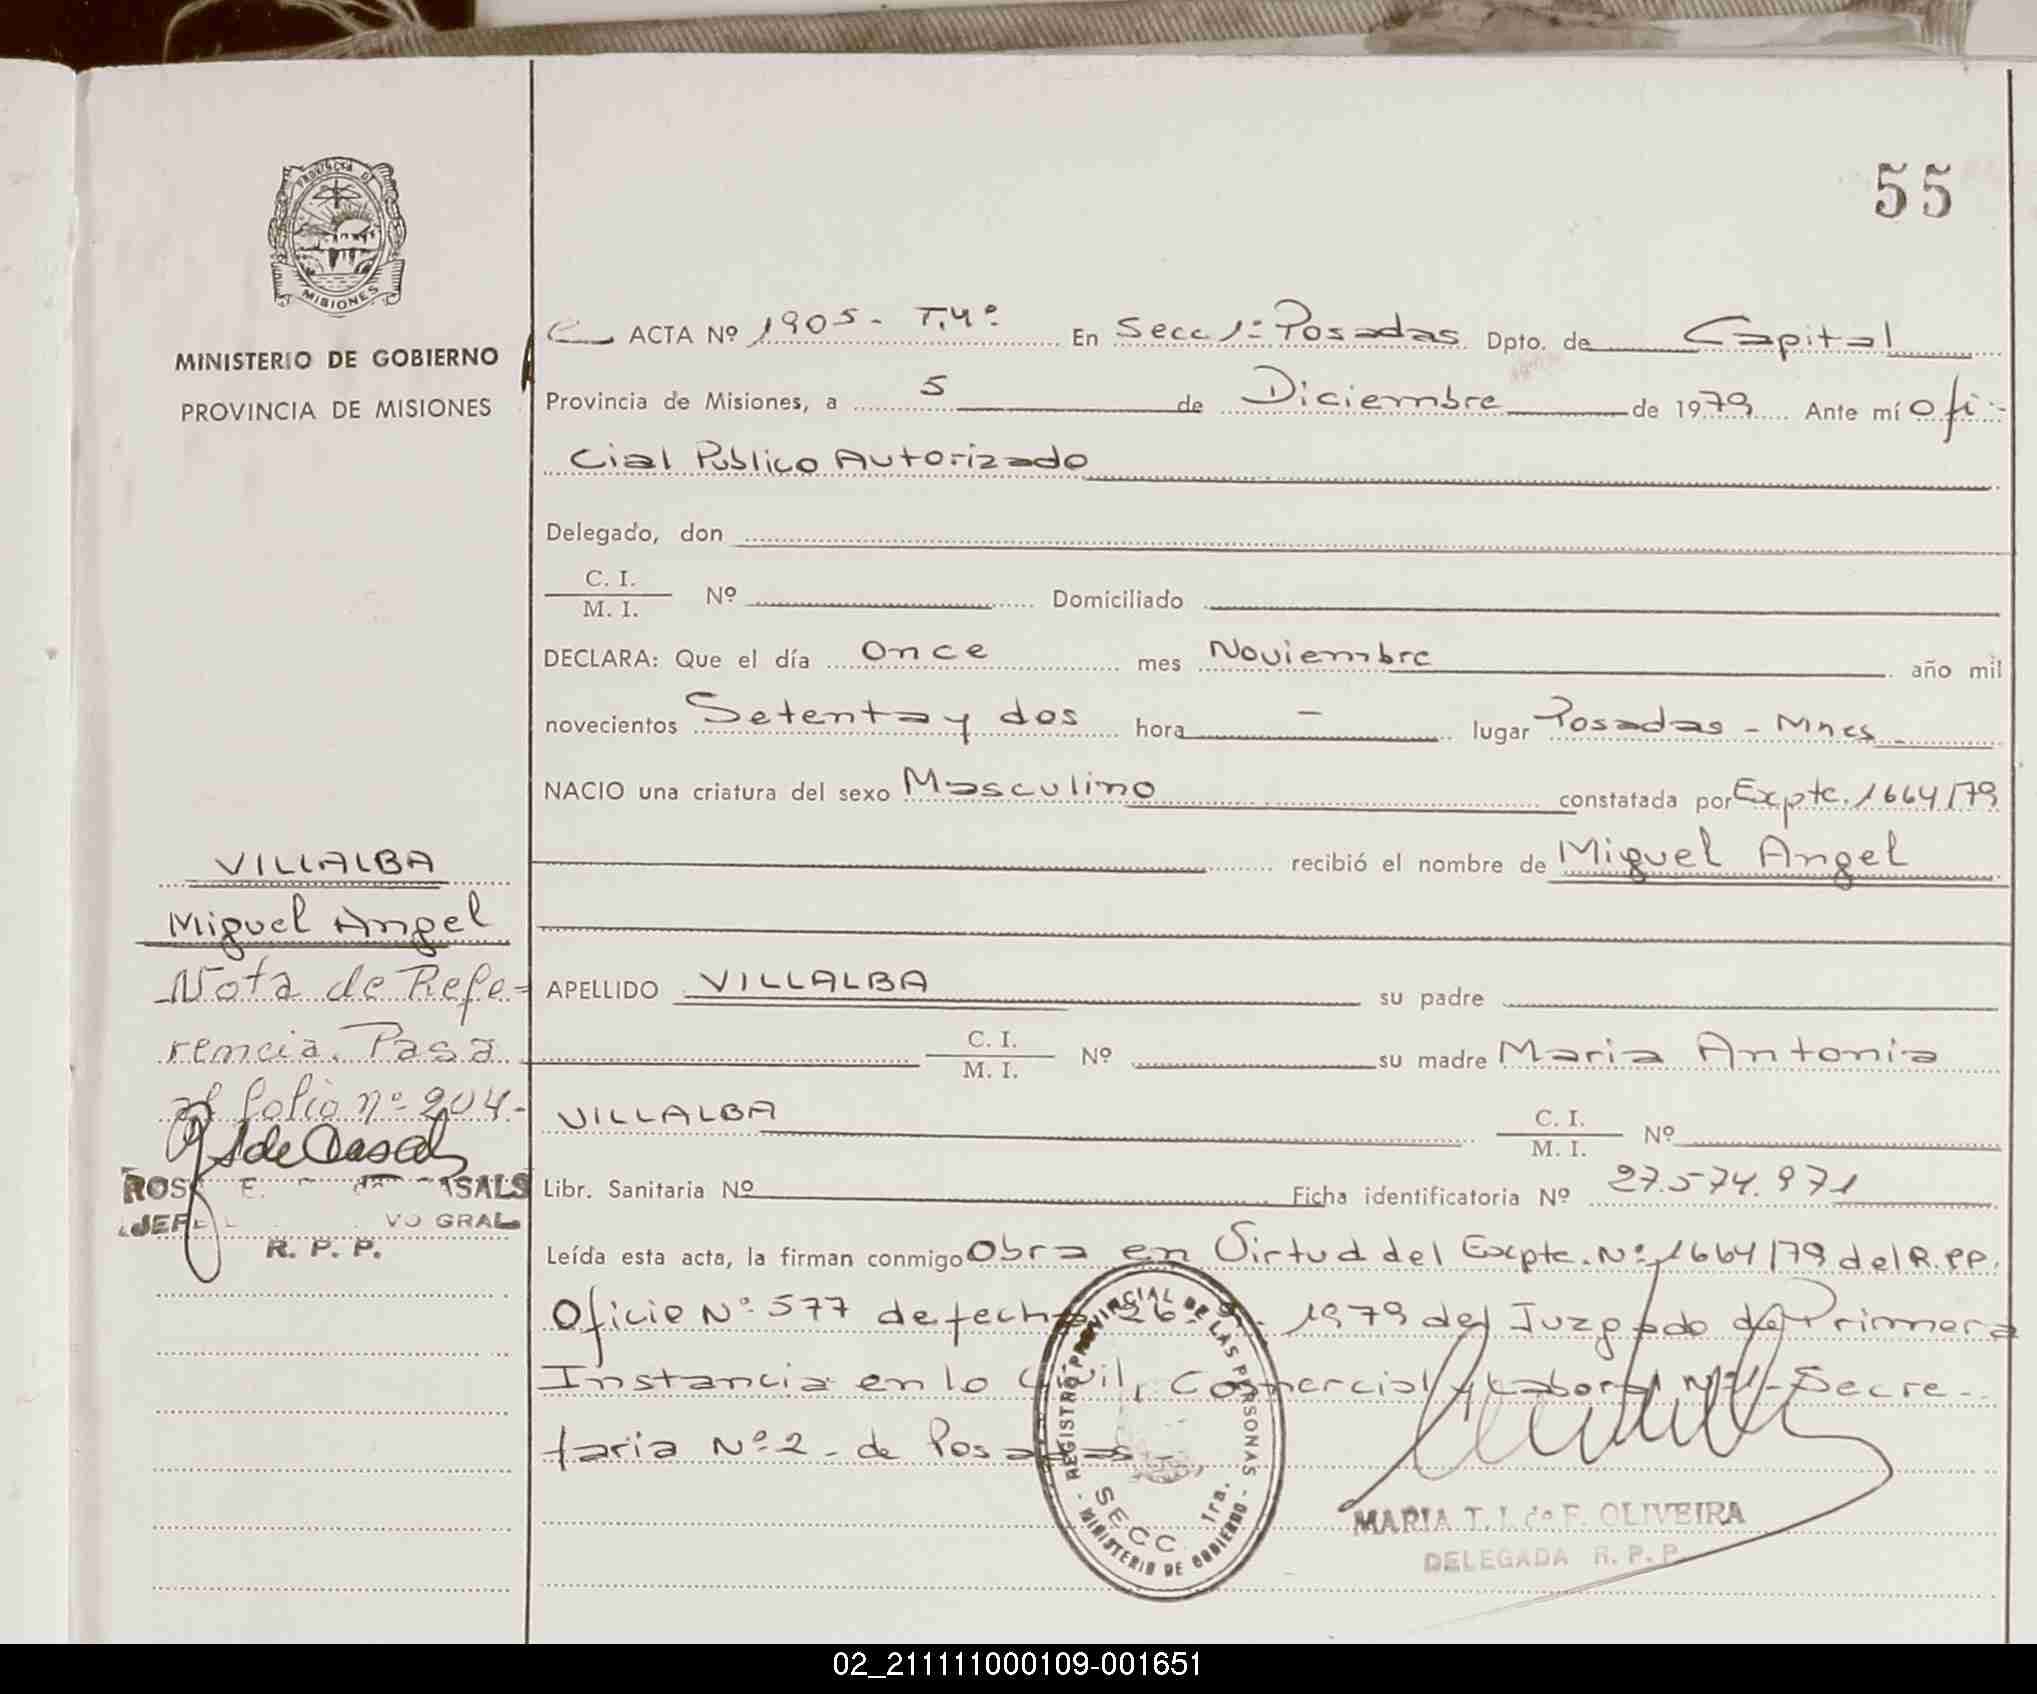 55
PROVINCIA DE
MISIONES
MINISTERIO DE GOBIERNO
PROVINCIA DE MISIONES
ACTA Nº 1905- T.4º En Secc 1º Posadas Dpto. de Capital
Provincia de Misiones, a 5 de Diciembre de 1979 Ante mí Ofi-
cial Publico Autorizado
Delegado, don
C. I.
M. I. Nº Domiciliado
DECLARA: Que el día Once mes Noviembre año mil
novecientos Setenta y dos hora - lugar Posadas - Mnes
NACIO una criatura del sexo Masculino constatada por Expte. 1664/79
recibió el nombre de Miguel Angel
VILLALBA
Miguel Angel
Nota de Refe-
rencia. Pasa
al folio nº 204.-
APELLIDO VILLALBA su padre
C. I.
M. I. Nº su madre Maria Antonia
VILLALBA C. I.
M. I. Nº
Libr. Sanitaria Nº Ficha identificatoria Nº 27.574.971
R. P. P.
Leída esta acta, la firman conmigo Obra en Virtud del Expte. Nº 1664/79 del R.PP.
Oficio Nº 577 de fecha 26- - 1979 del Juzgado de Primera
Instancia en lo Civil, Comercial y Laboral Nº 1- Secre-
taria Nº 2 - de Posadas
REGISTRO PROVINCIAL DE LAS PERSONAS
SECC 1ra.
MINISTERIO DE GOBIERNO
MARIA T. I. de F. OLIVEIRA
DELEGADA R. P. P.
02_211111000109-001651